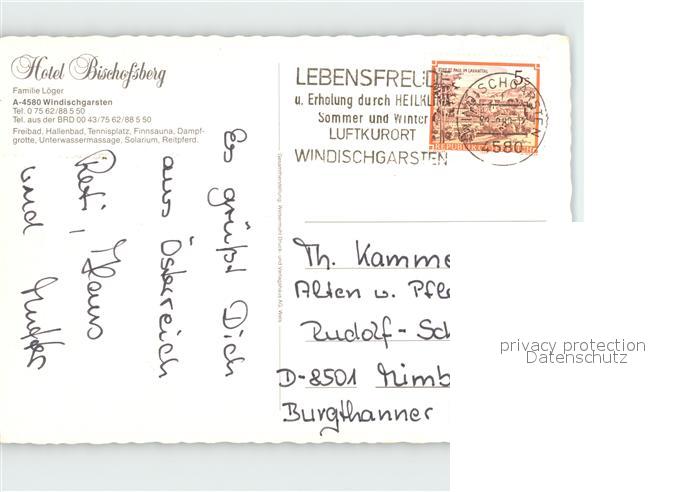 Hotel Bischofsberg
Familie Löger
A-4580 Windischgarsten
Tel. 0 75 62/88 5 50
Tel. aus der BRD 00 43/75 62/88 5 50
Freibad, Hallenbad, Tennisplatz, Finnsauna, Dampf-
grotte, Unterwassermassage, Solarium, Reitpferd.
Es grüßt Dich
aus Österreich
Reti, Klaus
und Mutter
LEBENSFREUDE
u. Erholung durch HEILKLIMA
Sommer und Winter
LUFTKURORT
WINDISCHGARSTEN
5
WINDISCHGARSTEN
4580
REPUBLIK
Th. Kamme
Alten u. Pfle
Rudolf-Sch
D-8501 Nimb
Burgthanner
privacy protection
Datenschutz